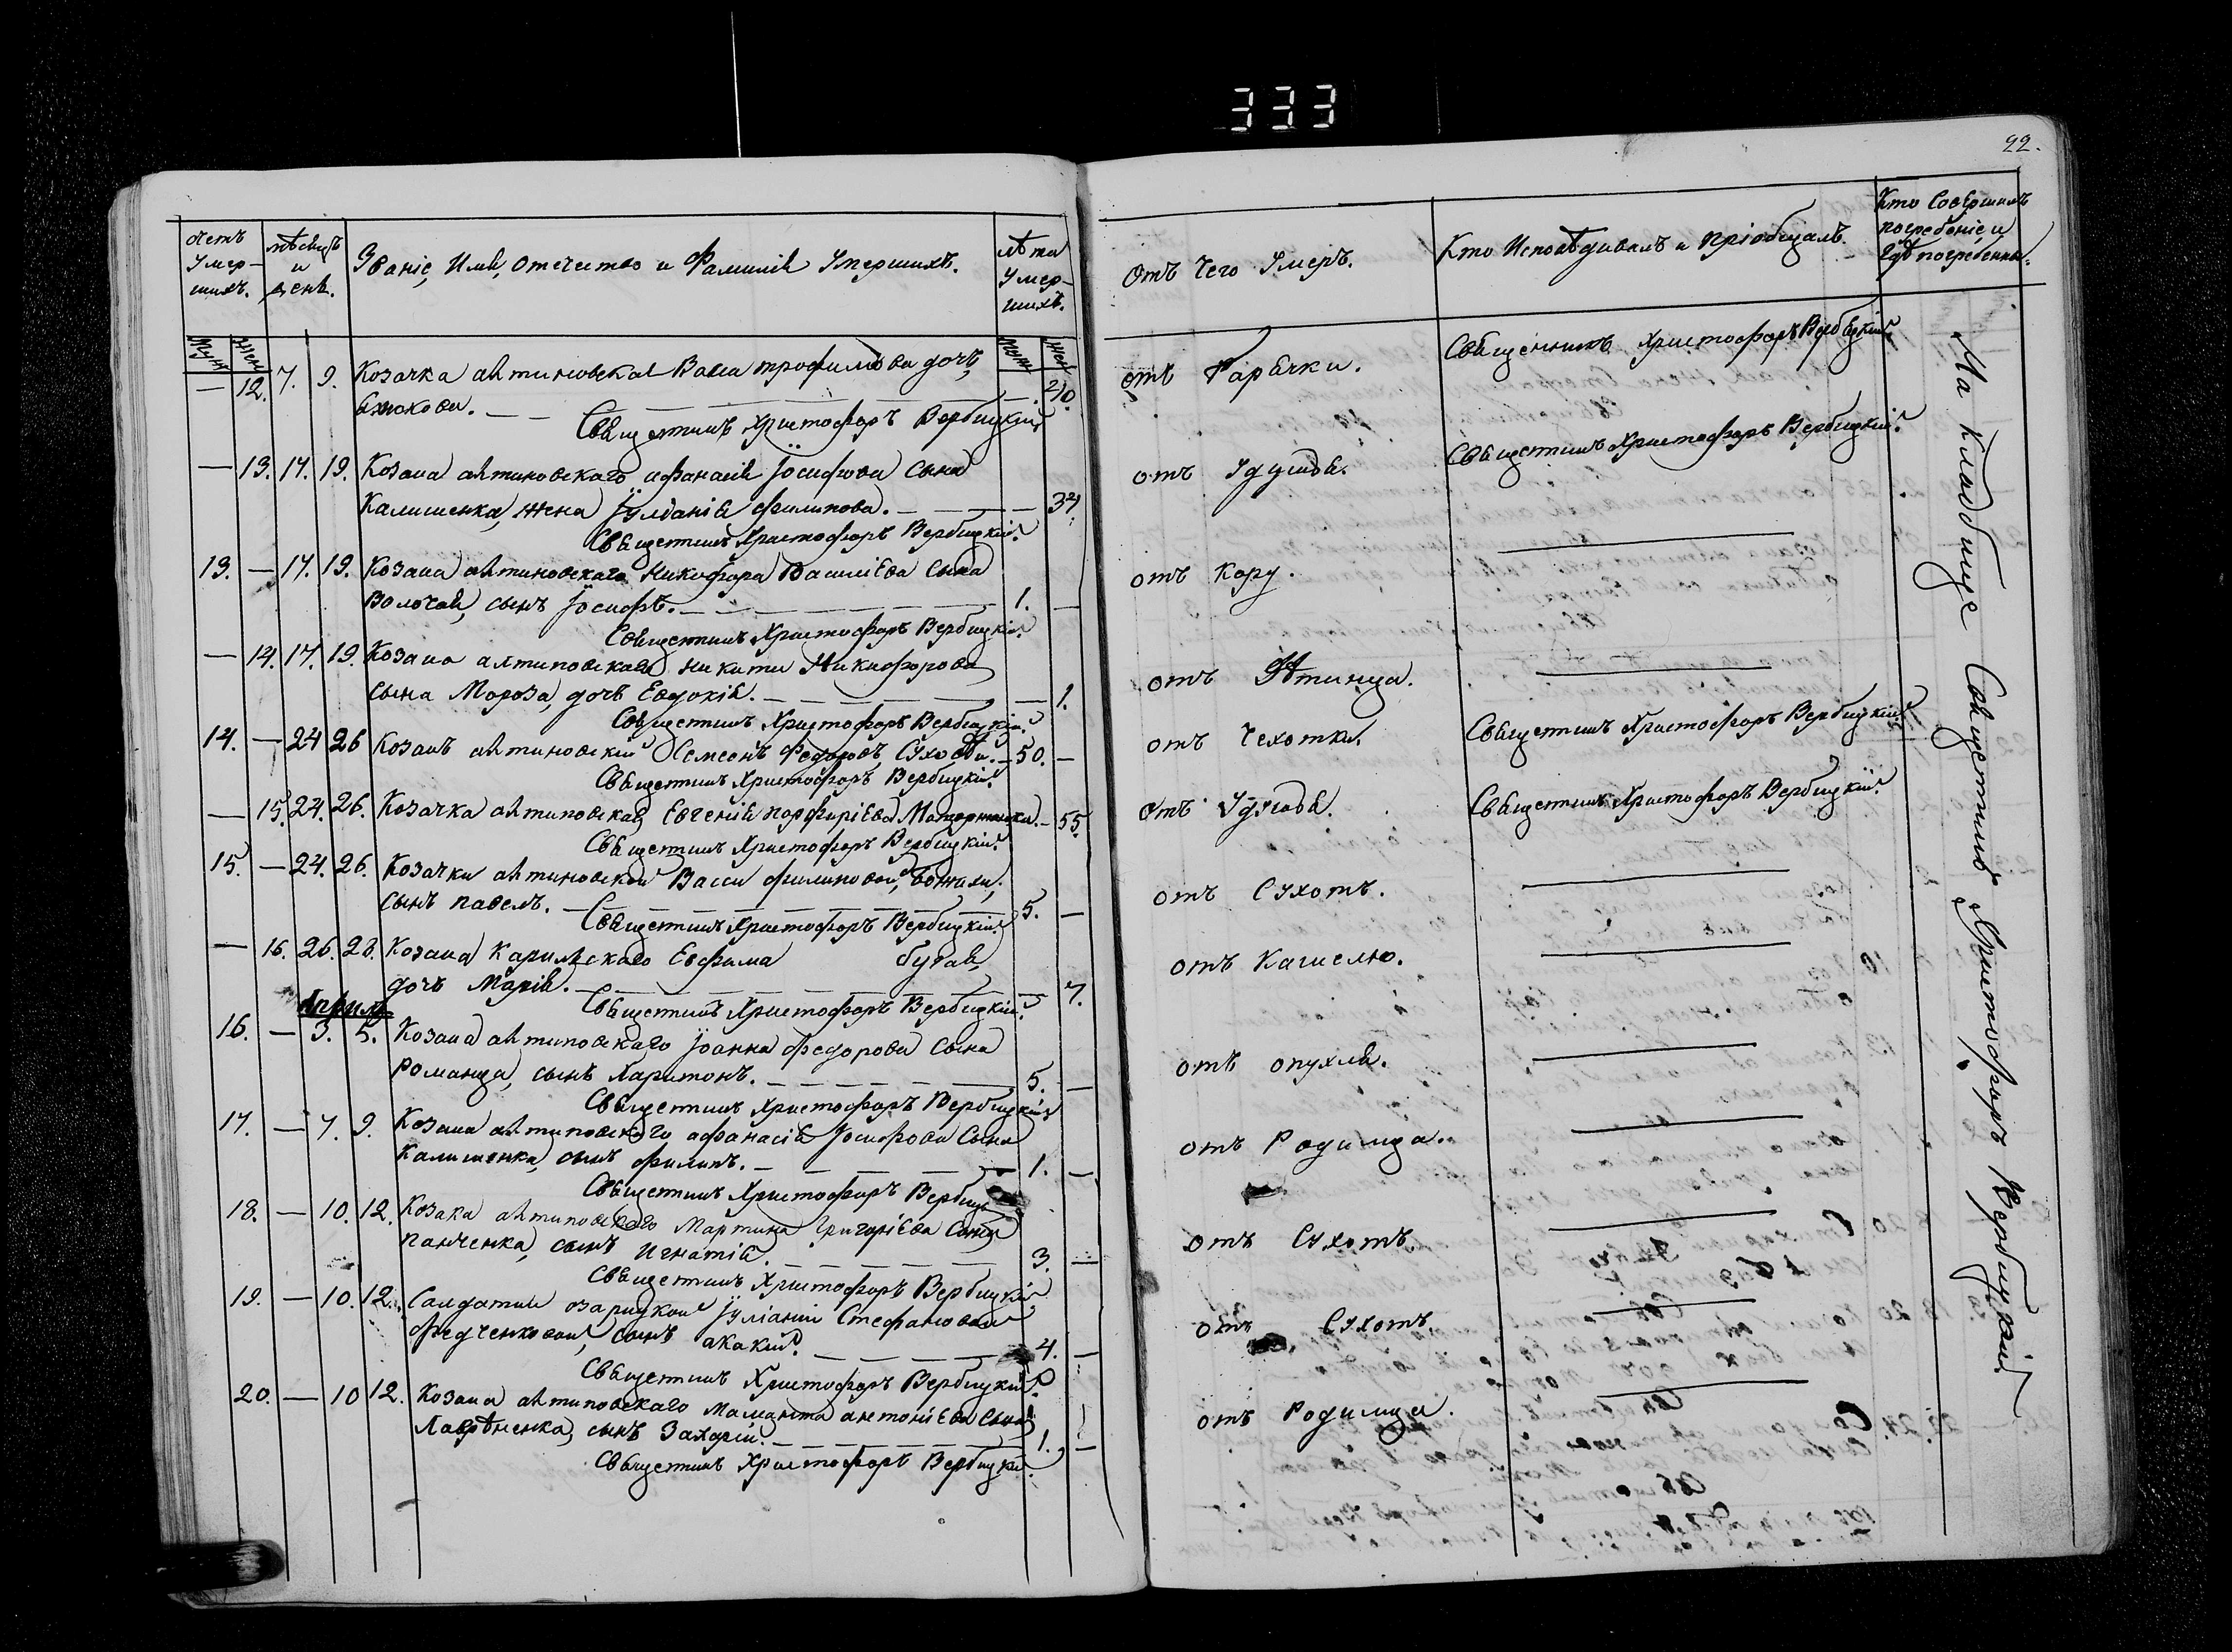 333
22.
Счетъ Умер-шихъ.
Мѣсяцъ и день.
Званіе, Имя, Отечество и Фамилія Умершихъ.
Лѣта Умер-шихъ.
Отъ Чего Умеръ.
Кто Исповѣдивалъ и пріобщалъ.
Кто Совершилъ погребеніе и гдѣ погребенны.
Муж
Жен
Муж
Жен
— 12. 7. 9. Козачка трофимова дочь
20.
отъ Гарячки.
Священникъ Христофоръ Вербицкій
Священникъ Христофоръ Вербицкій
— 13. 17. 19. Козака антиповскаго афанасія Іосифова Сына
Калишенка, жена Іуліанія филипова. — 32.
отъ Удушья.
Священникъ Христофоръ Вербицкій.
Священникъ Христофоръ Вербицкій.
13. — 17. 19. Козака антиповскаго Никифора Василіева Сына
Волочая, сынъ Іосифъ. — 1. —
отъ Кору.
Священникъ Христофоръ Вербицкій.
— 14. 17. 19. Козака антиповскаго Никити Никифорова
сына Мороза, дочь Евдокія. — 1.
отъ
Священникъ Христофоръ Вербицкій.
14. — 24 26 Козакъ антиповскій Семеонъ Федоровъ — 50. —
отъ Чехотки.
Священникъ Христофоръ Вербицкій
Священникъ Христофоръ Вербицкій.
— 15. 24. 26. Козачка антиповская Евгенія порфиріева — 55.
отъ Удушья.
Священникъ Христофоръ Вербицкій.
Священникъ Христофоръ Вербицкій.
15. — 24. 26. Козачки антиповской Васси филиповой,
сынъ павелъ. — 5. —
отъ Сухотъ.
Священникъ Христофоръ Вербицкій.
— 16. 26. 28. Козака Евфима бугая,
дочь Марія. — 7.
отъ Кашелю.
Священникъ Христофоръ Вербицкій.
Априль
16. — 3. 5. Козака антиповскаго Іоанна Федорова Сына
Романца, сынъ Харитонъ. — 5. —
отъ опухля.
Священникъ Христофоръ Вербицкій
17. — 7. 9. Козака антиповскаго афанасія Іосифова Сына
Калишенка, сынъ филипъ. — 1. —
отъ Родимца.
Священникъ Христофоръ
18. — 10. 12. Козака антиповскаго Мартина Григоріева Сына
панченка, сынъ Игнатій. — 3. —
отъ Сухотъ.
Священникъ Христофоръ Вербицкій
19. — 10. 12. Салдатки Іуліаніи Стефановой
федченковой, сынъ акакій. — 4. —
отъ Сухотъ.
Священникъ Христофоръ Вербицкій.
20. — 10 12. Козака антиповскаго Маманта антоніева Сына
Лаврѣненка, сынъ Захарій. — 1. —
отъ Родимца.
Священникъ Христофоръ Вербицкій.
На кладбище Священникъ Христофоръ Вербицкій